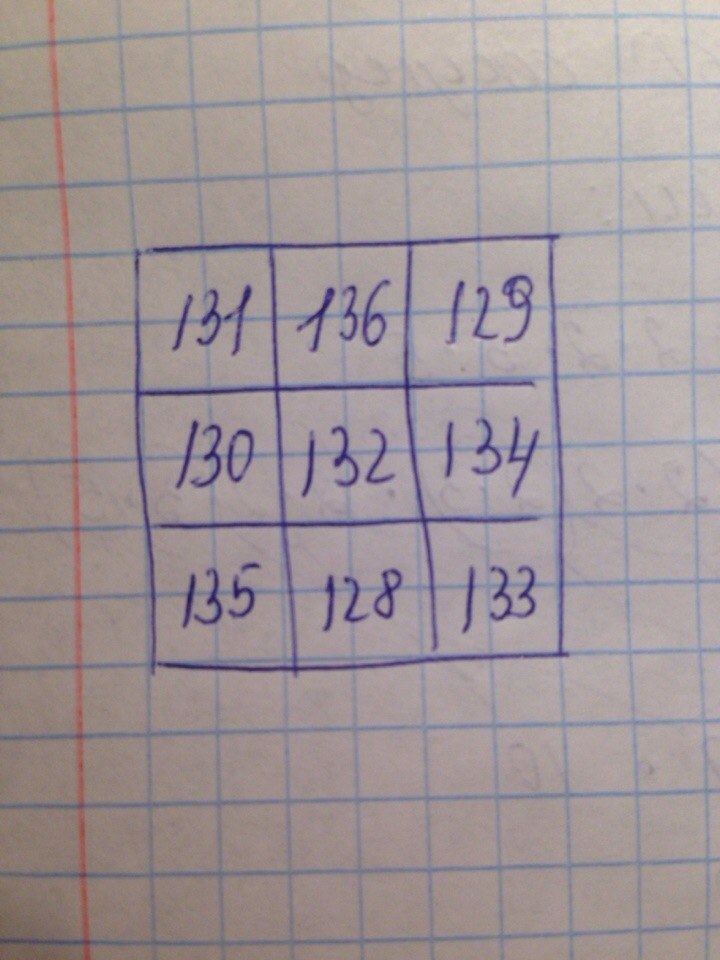 131 136 129
130 132 134
135 128 133